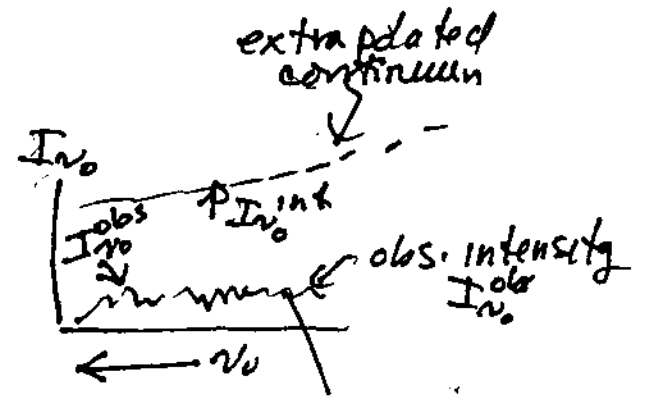 extrapolated
continuum
I_ν₀
I_ν₀^int
I_ν₀^obs
obs. intensity
I_ν₀^obs
ν₀